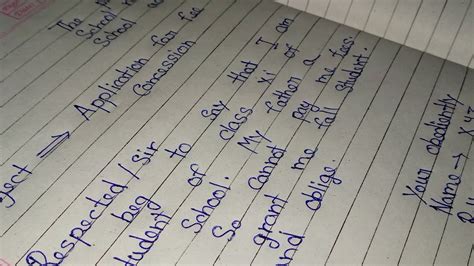 The
School
School
ject ⇒ Application for fee
Concession
Respected/Sir
beg to Say that I am
tudent of class XI of
School. My father a
So Cannot pay me fees.
grant me full Student.
nd oblige.
Your obediently
Name →